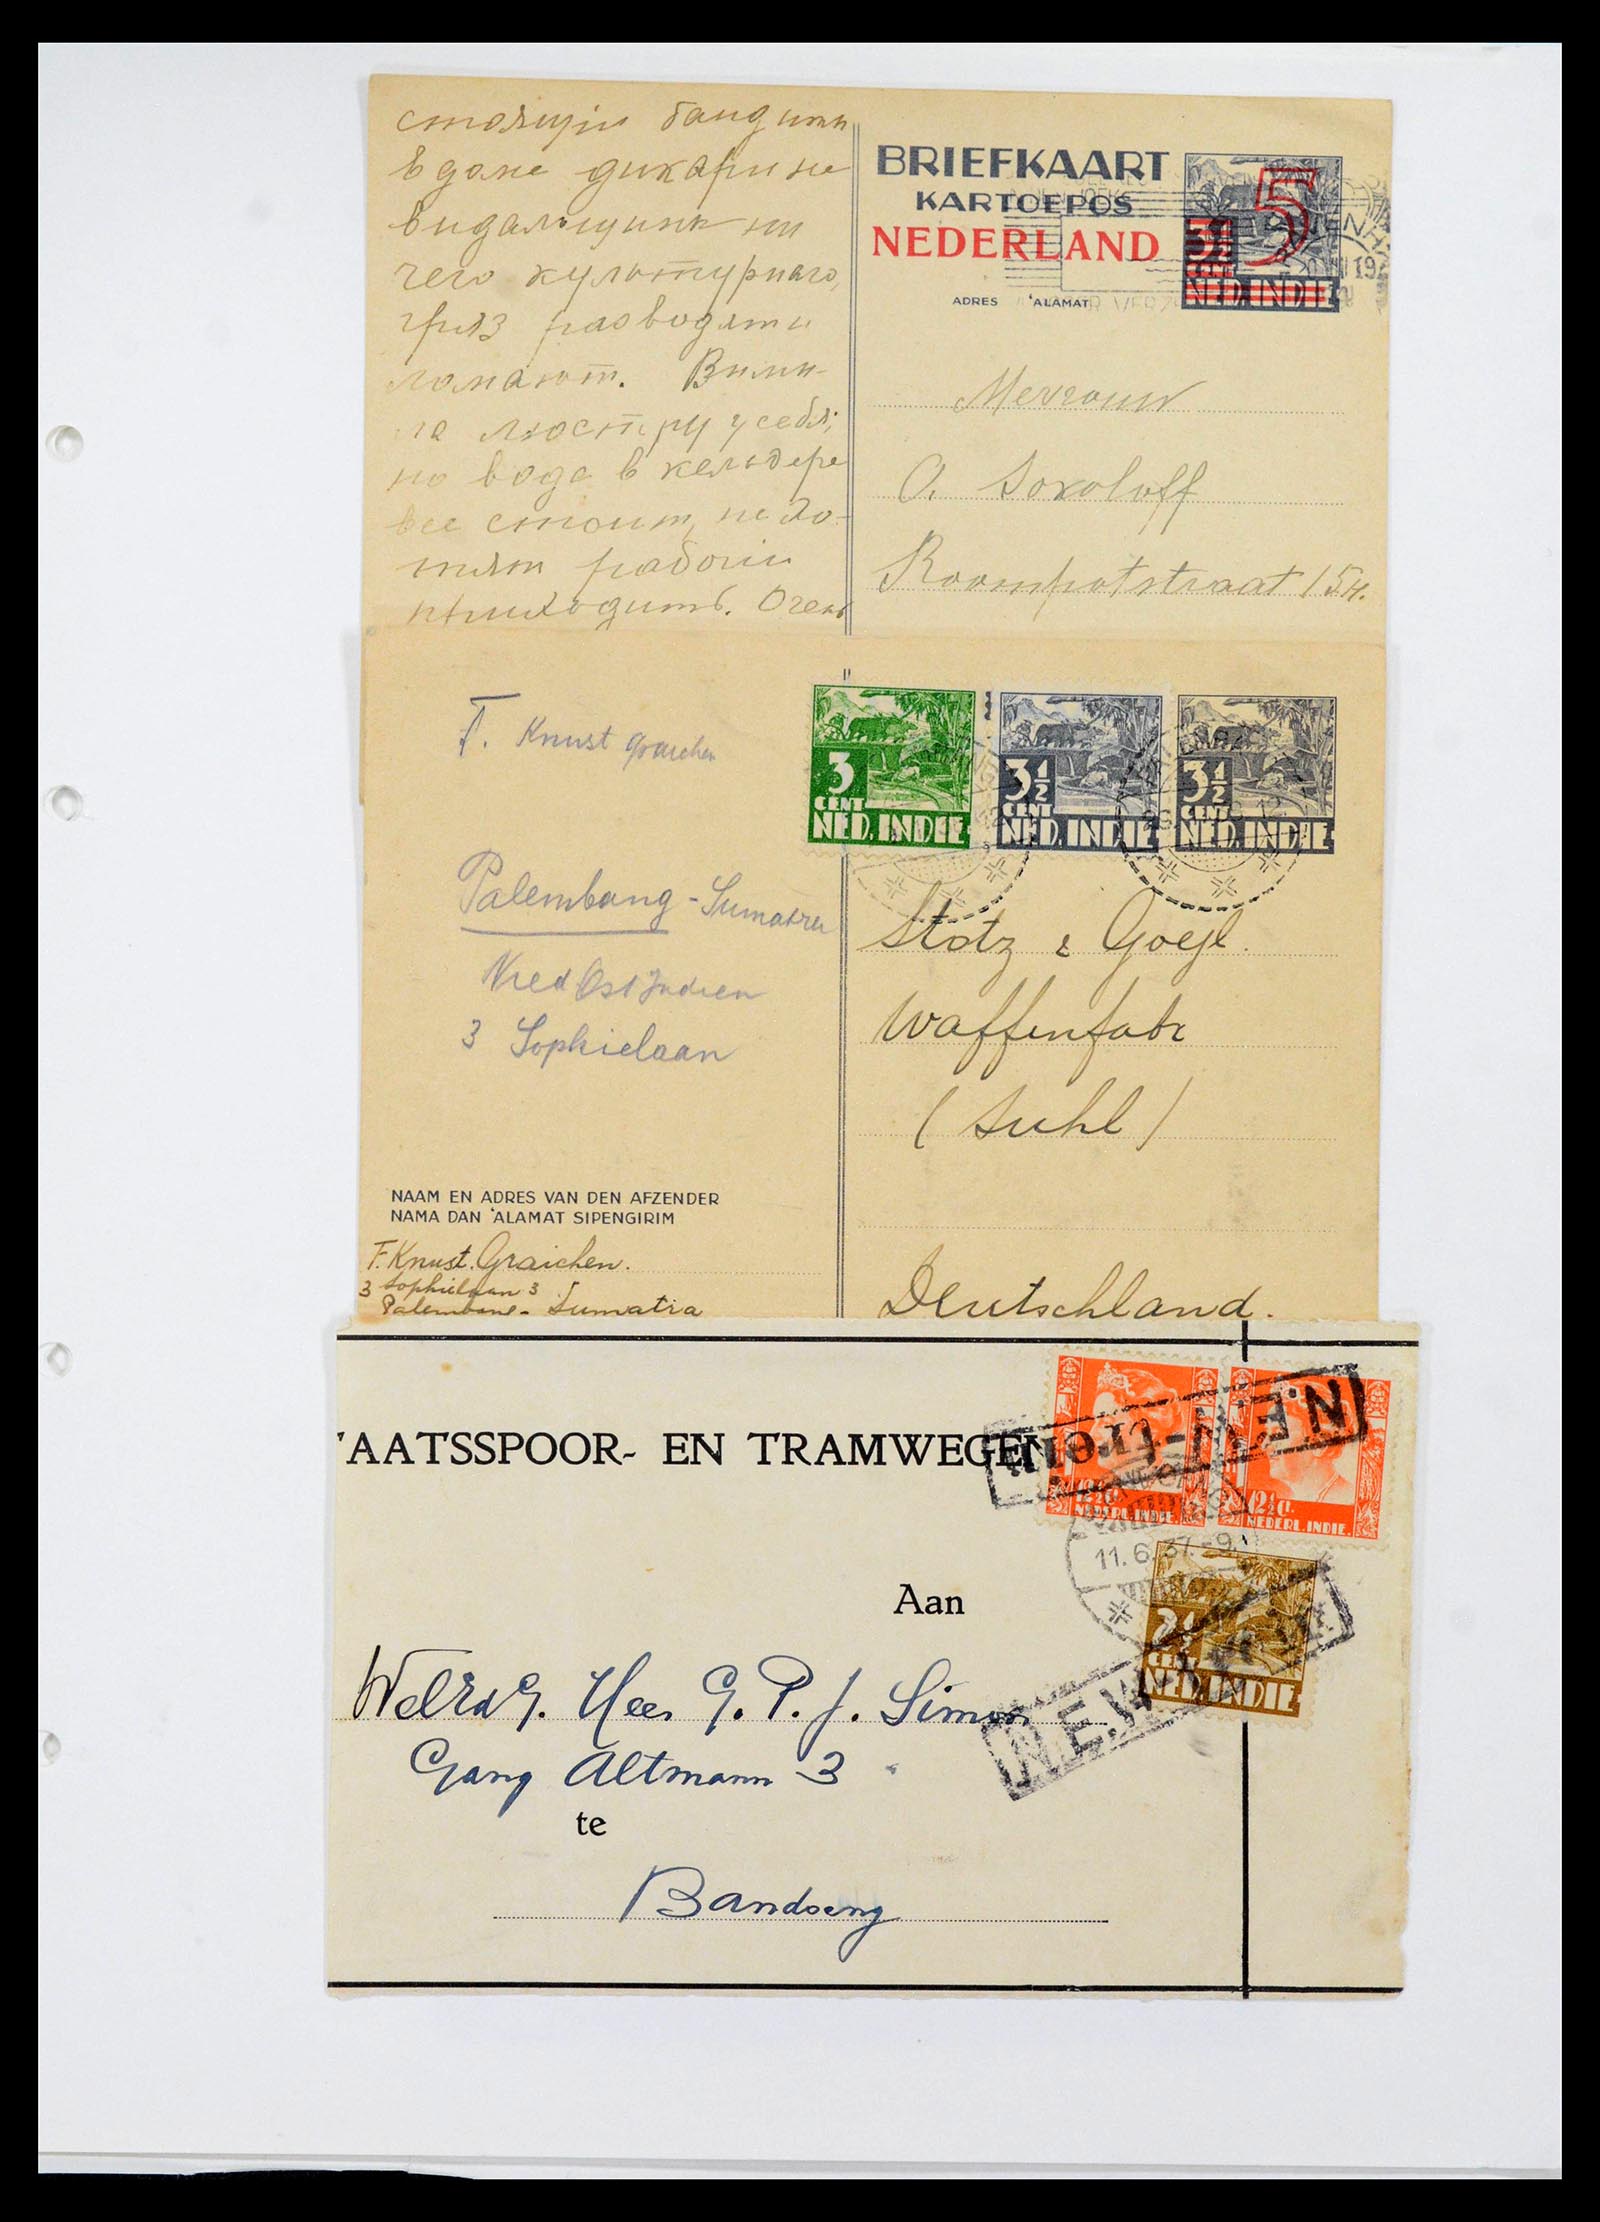 стоящiи бандити
в доме дикари не
видальщик ни
чего культурнаго,
гряз разводят и
ломают.
люстру у себя,
но вода в кельдере
все стоит, не хо-
тят рабочiи
приходить. Очень
BRIEFKAART
KARTOEPOS
NEDERLAND
5
3½
CENT
NED. INDIE
ADRES 'ALAMAT
Mevrouw
O. Sokoloff
Roompotstraat 15 H.
F. Knust Graichen
Palembang - Sumatra
Ned Ost Indien
3 Sophielaan
3
CENT
NED. INDIE
3½
CENT
NED. INDIE
3½
CENT
NED. INDIE
Stotz & Goegl.
Waffenfabr
(Suhl)
Deutschland.
NAAM EN ADRES VAN DEN AFZENDER
NAMA DAN 'ALAMAT SIPENGIRIM
F. Knust. Graichen.
3 Sophielaan 3
Palembang - Sumatra
TAATSSPOOR- EN TRAMWEGEN
12½ c.
NEDERL. INDIE.
12½ c.
NEDERL. INDIE.
11.6.37.-9
2½
CENT
NED. INDIE
Aan
WelEdG. Heer G. P. J. Simon
Gang Altmann 3
te
Bandoeng